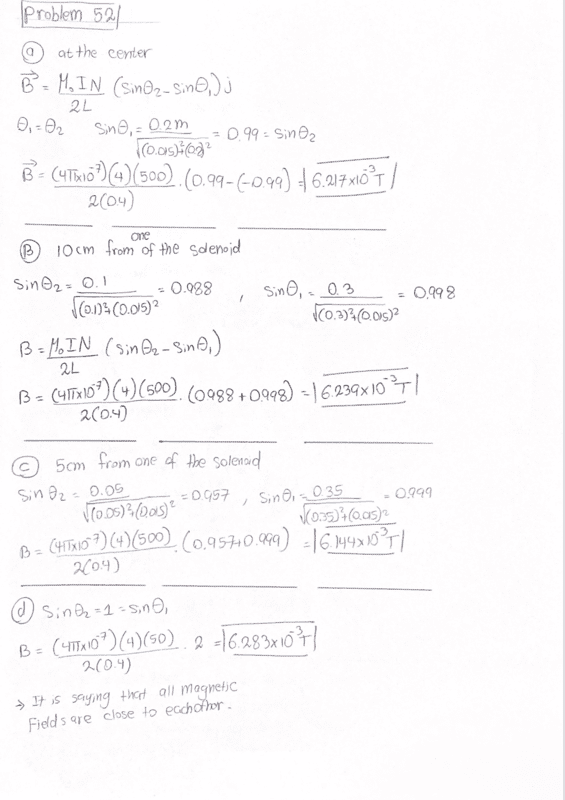 Problem 52
(a) at the center
B⃗ = M₀IN/2L (Sinθ₂-Sinθ₁)j
θ₁=θ₂ Sinθ₁= 0.2m/√(0.015)²+(0.2)² = 0.99 = Sinθ₂
B⃗ = (4π×10⁻⁷)(4)(500)/2(0.4) · (0.99-(-0.99)) = |6.217×10⁻³T|
(B) 10cm from one of the solenoid
Sinθ₂ = 0.1/√(0.1)²+(0.015)² = 0.988 , Sinθ₁ = 0.3/√(0.3)²+(0.015)² = 0.998
B = M₀IN/2L (Sinθ₂-Sinθ₁)
B = (4π×10⁻⁷)(4)(500)/2(0.4) · (0.988+0.998) = |6.239×10⁻³T|
(c) 5cm from one of the solenoid
Sinθ₂ = 0.05/√(0.05)²+(0.015)² = 0.957 , Sinθ₁ = 0.35/√(0.35)²+(0.015)² = 0.999
B = (4π×10⁻⁷)(4)(500)/2(0.4) · (0.957+0.999) = |6.144×10⁻³T|
(d) Sinθ₂=1=Sinθ₁
B = (4π×10⁻⁷)(4)(50)/2(0.4) · 2 = |6.283×10⁻³T|
→ It is saying that all magnetic
Fields are close to eachother.